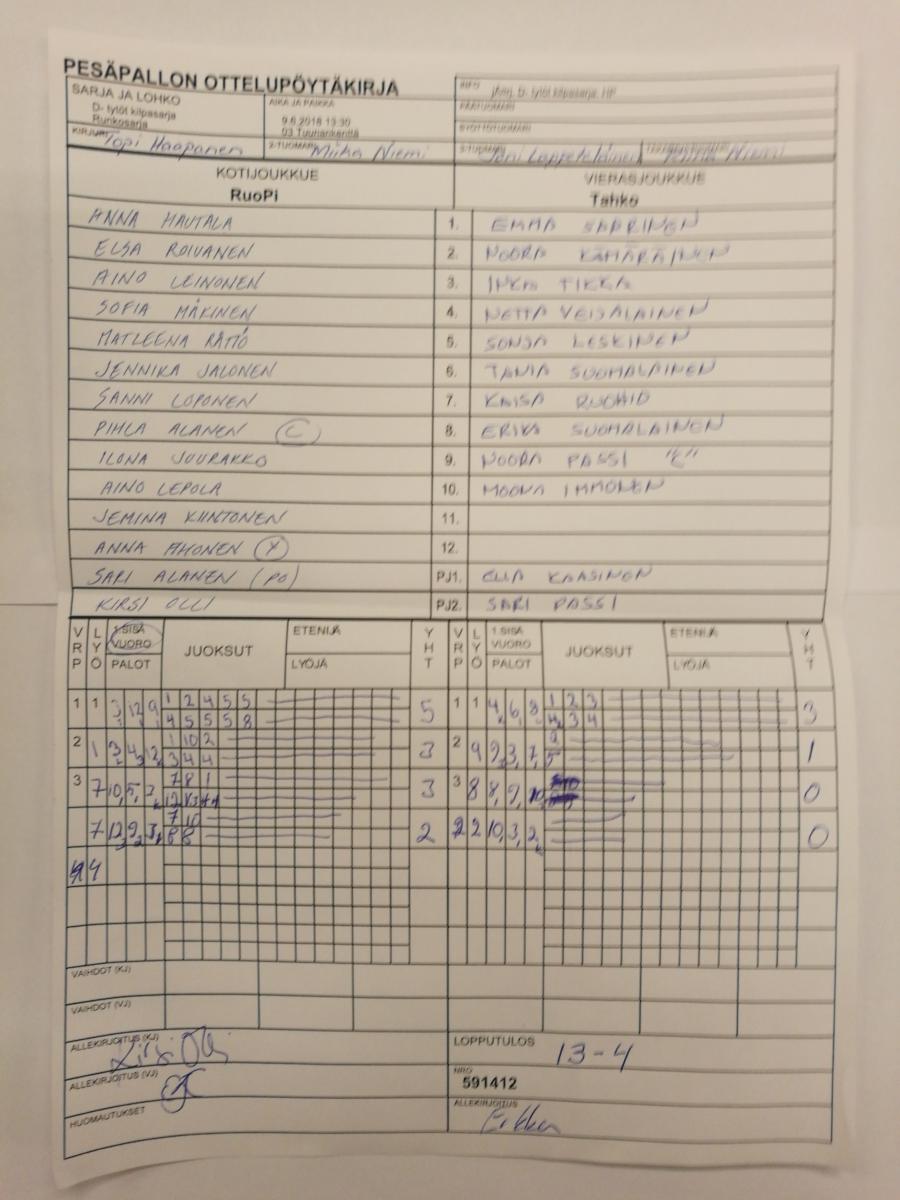 PESÄPALLON OTTELUPÖYTÄKIRJA
SARJA JA LOHKO
D- tytöt kilpasarja
Runkosarja
AIKA JA PAIKKA
9.6.2018 13:30
03 Tuuhankenttä
INFO D- tytöt kilpasarja, HP
PÄÄTUOMARI
SYÖTTÖTUOMARI
KIRJURI Topi Haapanen
2-TUOMARI Miika Niemi
3-TUOMARI Joni Lappeteläinen
Niemi
KOTIJOUKKUE
RuoPi
VIERASJOUKKUE
Tahko
ANNA HAUTALA 1. EMMA SAARINEN
ELSA ROIVANEN 2. NOORA KÄMÄRÄINEN
AINO LEINONEN 3. INKA TIKKA
SOFIA MÄKINEN 4. NETTA VEIJALAINEN
MATLEENA RÄTTÖ 5. SONJA LESKINEN
JENNIKA JALONEN 6. TANJA SUOMALAINEN
SANNI LOPONEN 7. KAISA RUOHIO
PIHLA ALANEN C 8. ERIKA SUOMALAINEN
ILONA JUURAKKO 9. NOORA PASSI "C"
AINO LEPOLA 10. MOONA IMMONEN
JEMINA KIINTONEN 11.
ANNA AHONEN 12.
SARI ALANEN (PO) PJ1. ELLA KAASINEN
KIRSI OLLI PJ2. SARI PASSI
VRP LYÖ 1.SISÄ VUORO PALOT JUOKSUT ETENIJÄ LYÖJÄ YHT VRP LYÖ 1.SISÄ VUORO PALOT JUOKSUT ETENIJÄ LYÖJÄ YHT
1 1 3 12 9 1 2 4 5 5 5 1 1 4 6 8 1 2 3 3
4 5 5 5 8 3 4
2 1 3 4 12 1 10 2 3 2 9 9 3 7 1
3 4 4 5
3 7 10 5 3 7 8 1 3 3 8 8 9 10 0
7 12 9 3 7 10 2 2 10 3 2 0
8 8
4
VAIHDOT (KJ)
VAIHDOT (VJ)
ALLEKIRJOITUS (KJ) Kirsi Olli
LOPPUTULOS 13-4
ALLEKIRJOITUS (VJ)
NRO
591412
HUOMAUTUKSET
ALLEKIRJOITUS